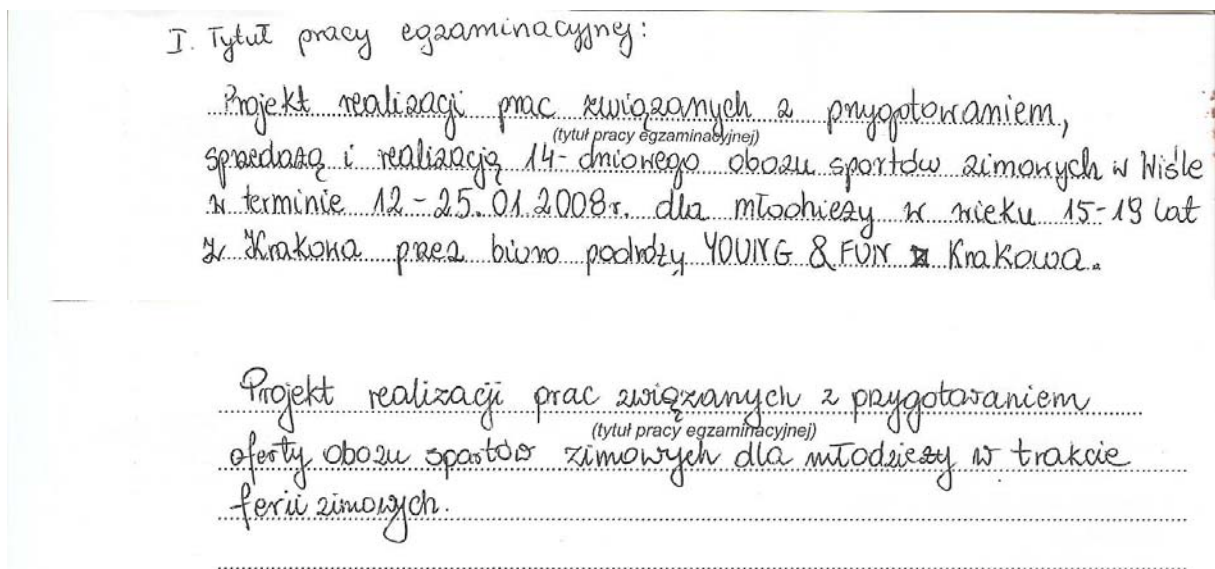 I. Tytuł pracy egzaminacyjnej:
Projekt realizacji prac związanych z przygotowaniem,
(tytuł pracy egzaminacyjnej)
sprzedażą i realizacją 14-dniowego obozu sportów zimowych w Wiśle
w terminie 12-25.01.2008r. dla młodzieży w wieku 15-19 lat
z Krakowa przez biuro podróży YOUNG & FUN z Krakowa.
Projekt realizacji prac związanych z przygotowaniem
(tytuł pracy egzaminacyjnej)
oferty obozu sportów zimowych dla młodzieży w trakcie
ferii zimowych.